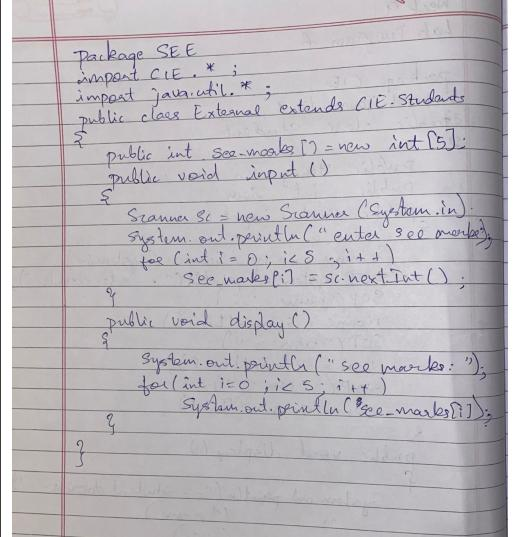 package SEE
import CIE.*;
import java.util.*;
public class External extends CIE.Students
{
public int see_marks[] = new int [5];
public void input ()
{
Scanner sc = new Scanner (System.in);
System.out.println(" enter see marks");
for (int i = 0; i< 5; i++)
see_marks[i] = sc.nextInt();
}
public void display ()
{
System.out.println (" see marks: ");
for(int i=0; i< 5; i++)
System.out.println ("see_marks[i]);
}
}